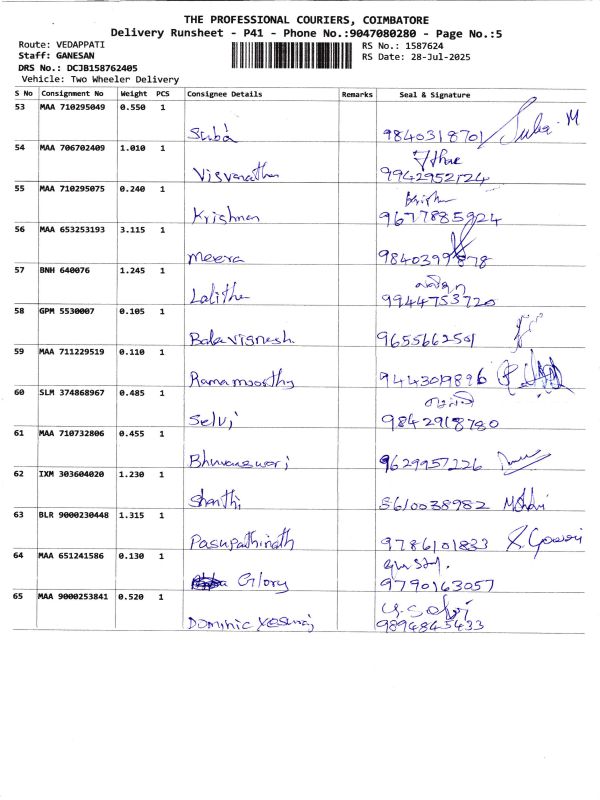 THE PROFESSIONAL COURIERS, COIMBATORE
Delivery Runsheet - P41 - Phone No.:9047080280 - Page No.:5
Route: VEDAPPATI
Staff: GANESAN
DRS No.: DCJB158762405
Vehicle: Two Wheeler Delivery
RS No.: 1587624
RS Date: 28-Jul-2025
S No Consignment No Weight PCS Consignee Details Remarks Seal & Signature
53 MAA 710295049 0.550 1
Suba 9840318701 Suba. M
54 MAA 706702409 1.010 1
Visvanathan 9942952724
55 MAA 710295075 0.240 1
Krishnan 9677885924
56 MAA 653253193 3.115 1
Meera 9840399878
57 BNH 640076 1.245 1
Lalitha 9944753720
58 GPM 5530007 0.105 1
Balavignesh 9655662501
59 MAA 711229519 0.110 1
Ramamoorthy 9443019896
60 SLM 374868967 0.485 1
Selvi 9842918780
61 MAA 710732806 0.455 1
Bhuvaneswari 9629957226
62 IXM 303604020 1.230 1
Shanthi 8610038982
63 BLR 9000230448 1.315 1
Pasupathinath 9786101833 S. Gowri
64 MAA 651241586 0.130 1
Glory 9790163057
65 MAA 9000253841 0.520 1
Dominic Yesuraj 9894845433